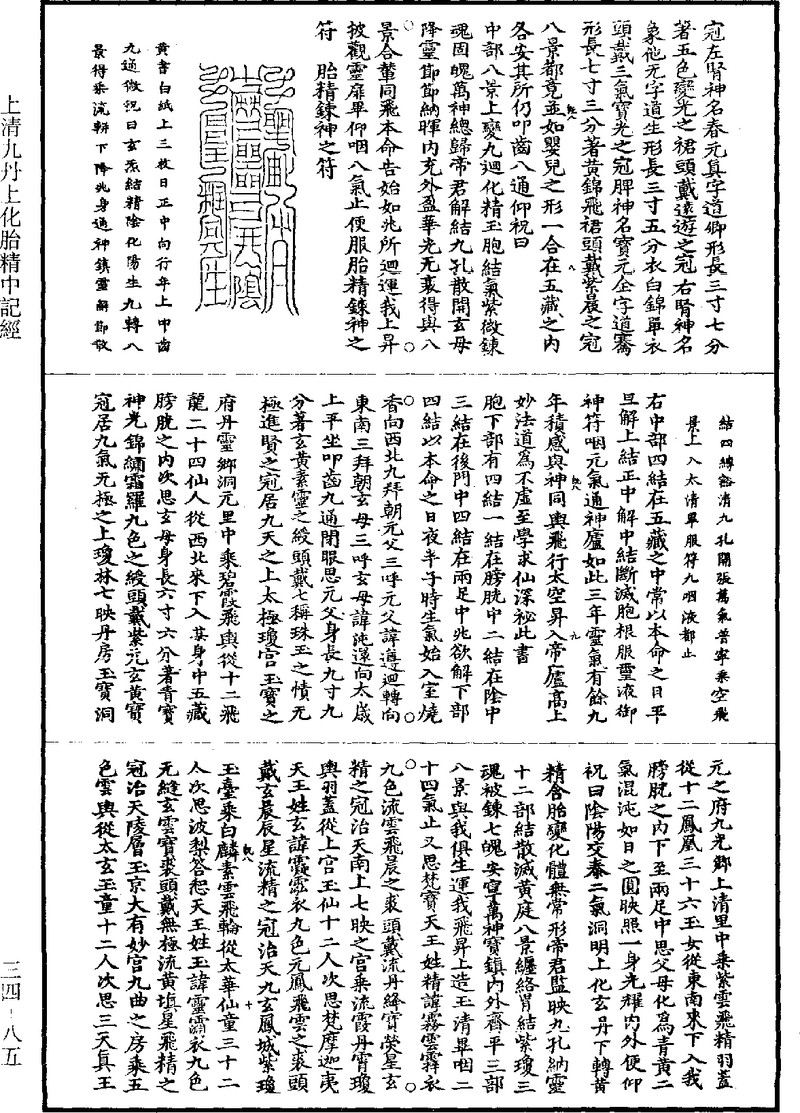 冠左腎神名春元真字道卿形長三寸七分
著五色變光之裙頭戴遠遊之冠右腎神名
象他元字道生形長三寸五分衣白錦單衣
頭戴三氣寶光之冠脾神名寶元全字道騫
形長七寸三分著黃錦飛裙頭戴紫晨之冠
八景都竟並如嬰兒之形一合在五藏之內
各安其所仍叩齒八通仰祝曰
中部八景上變九迴化精玉胞結氣紫微鍊
魂固魄萬神總歸帝君解結九孔散開玄母
降靈節節納暉內充外盈華光无衰得與八
景合輦同飛本命告始如兆所迴運我上昇
披觀靈扉畢仰咽八氣止便服胎精鍊神之
符　胎精鍊神之符
黃書白紙上三枚日正中向行年上叩齒
九通微祝曰玄炁結精陰化陽生九轉八
景得乘流軿下降兆身通神鎮靈解節散
結四縛豁清九孔開張萬氣普寧乘空飛
景上入太清畢服符九咽液都止
右中部四結在五藏之中常以本命之日平
旦解上結正中解中結斷滅胞根服靈液御
神符咽元氣通神廬如此三年靈氣有餘九
年積感與神同輿飛行太空昇入帝廬高上
妙法道為不虛至學求仙深祕此書
胞下部有四結一結在膀胱中二結在陰中
三結在後門中四結在兩足中兆欲解下部
四結以本命之日夜半子時生氣始入室燒
香向西北九拜朝元父三呼元父諱迴轉向
東南三拜朝玄母三呼玄母諱還向太歲
上平坐叩齒九通閉眼思元父身長九寸九
分著玄黃素靈之綬頭戴七稱珠玉之幘无
極進賢之冠居九天之上太極瓊宮玉寶之
府丹靈鄉洞元里中乘碧霞飛輿從十二飛
龍二十四仙人從西北來下入某身中五藏
膀胱之內次思玄母身長六寸六分著青寶
神光錦繡霜羅九色之綬頭戴紫元玄黃寶
冠居九氣无極之上瓊林七映丹房玉寶洞
元之府九光鄉上清里中乘紫雲飛精羽蓋
從十二鳳凰三十六玉女從東南來下入我
膀胱之內下至兩足中思父母化為青黃二
氣混沌如日之圓映照一身光耀內外便仰
祝曰陰陽交泰二氣洞明上化玄丹下轉黃
精含胎變化體無常形帝君監映九孔納靈
十二部結散滅黃庭八景纏絡胃結紫瓊三
魂被鍊七魄安寧萬神寶鎮內外齊平三部
八景與我俱生運我飛昇上造玉清畢咽二
十四氣止又思梵寶天王姓精諱霧雲霹衣
九色流雲飛晨之裘頭戴流丹絳寶熒星玄
精之冠治天南上七映之宮乘流霞丹霄瓊
輿羽蓋從上宮玉仙十二人次思梵摩迦夷
天王姓玄諱霞衣九色元鳳飛雲之裘頭
戴玄晨辰星流精之冠治天九玄鳳城紫瓊
玉臺乘白麟素雲飛輪從太華仙童三十二
人次思波梨答恕天王姓玉諱靈衣九色
无縫玄雲寶裘頭戴無極流黃填星飛精之
冠治天陵層玉京大有妙宮九曲之房乘五
色雲輿從太玄玉童十二人次思三天真王
上清九丹上化胎精中記經
三四-八五